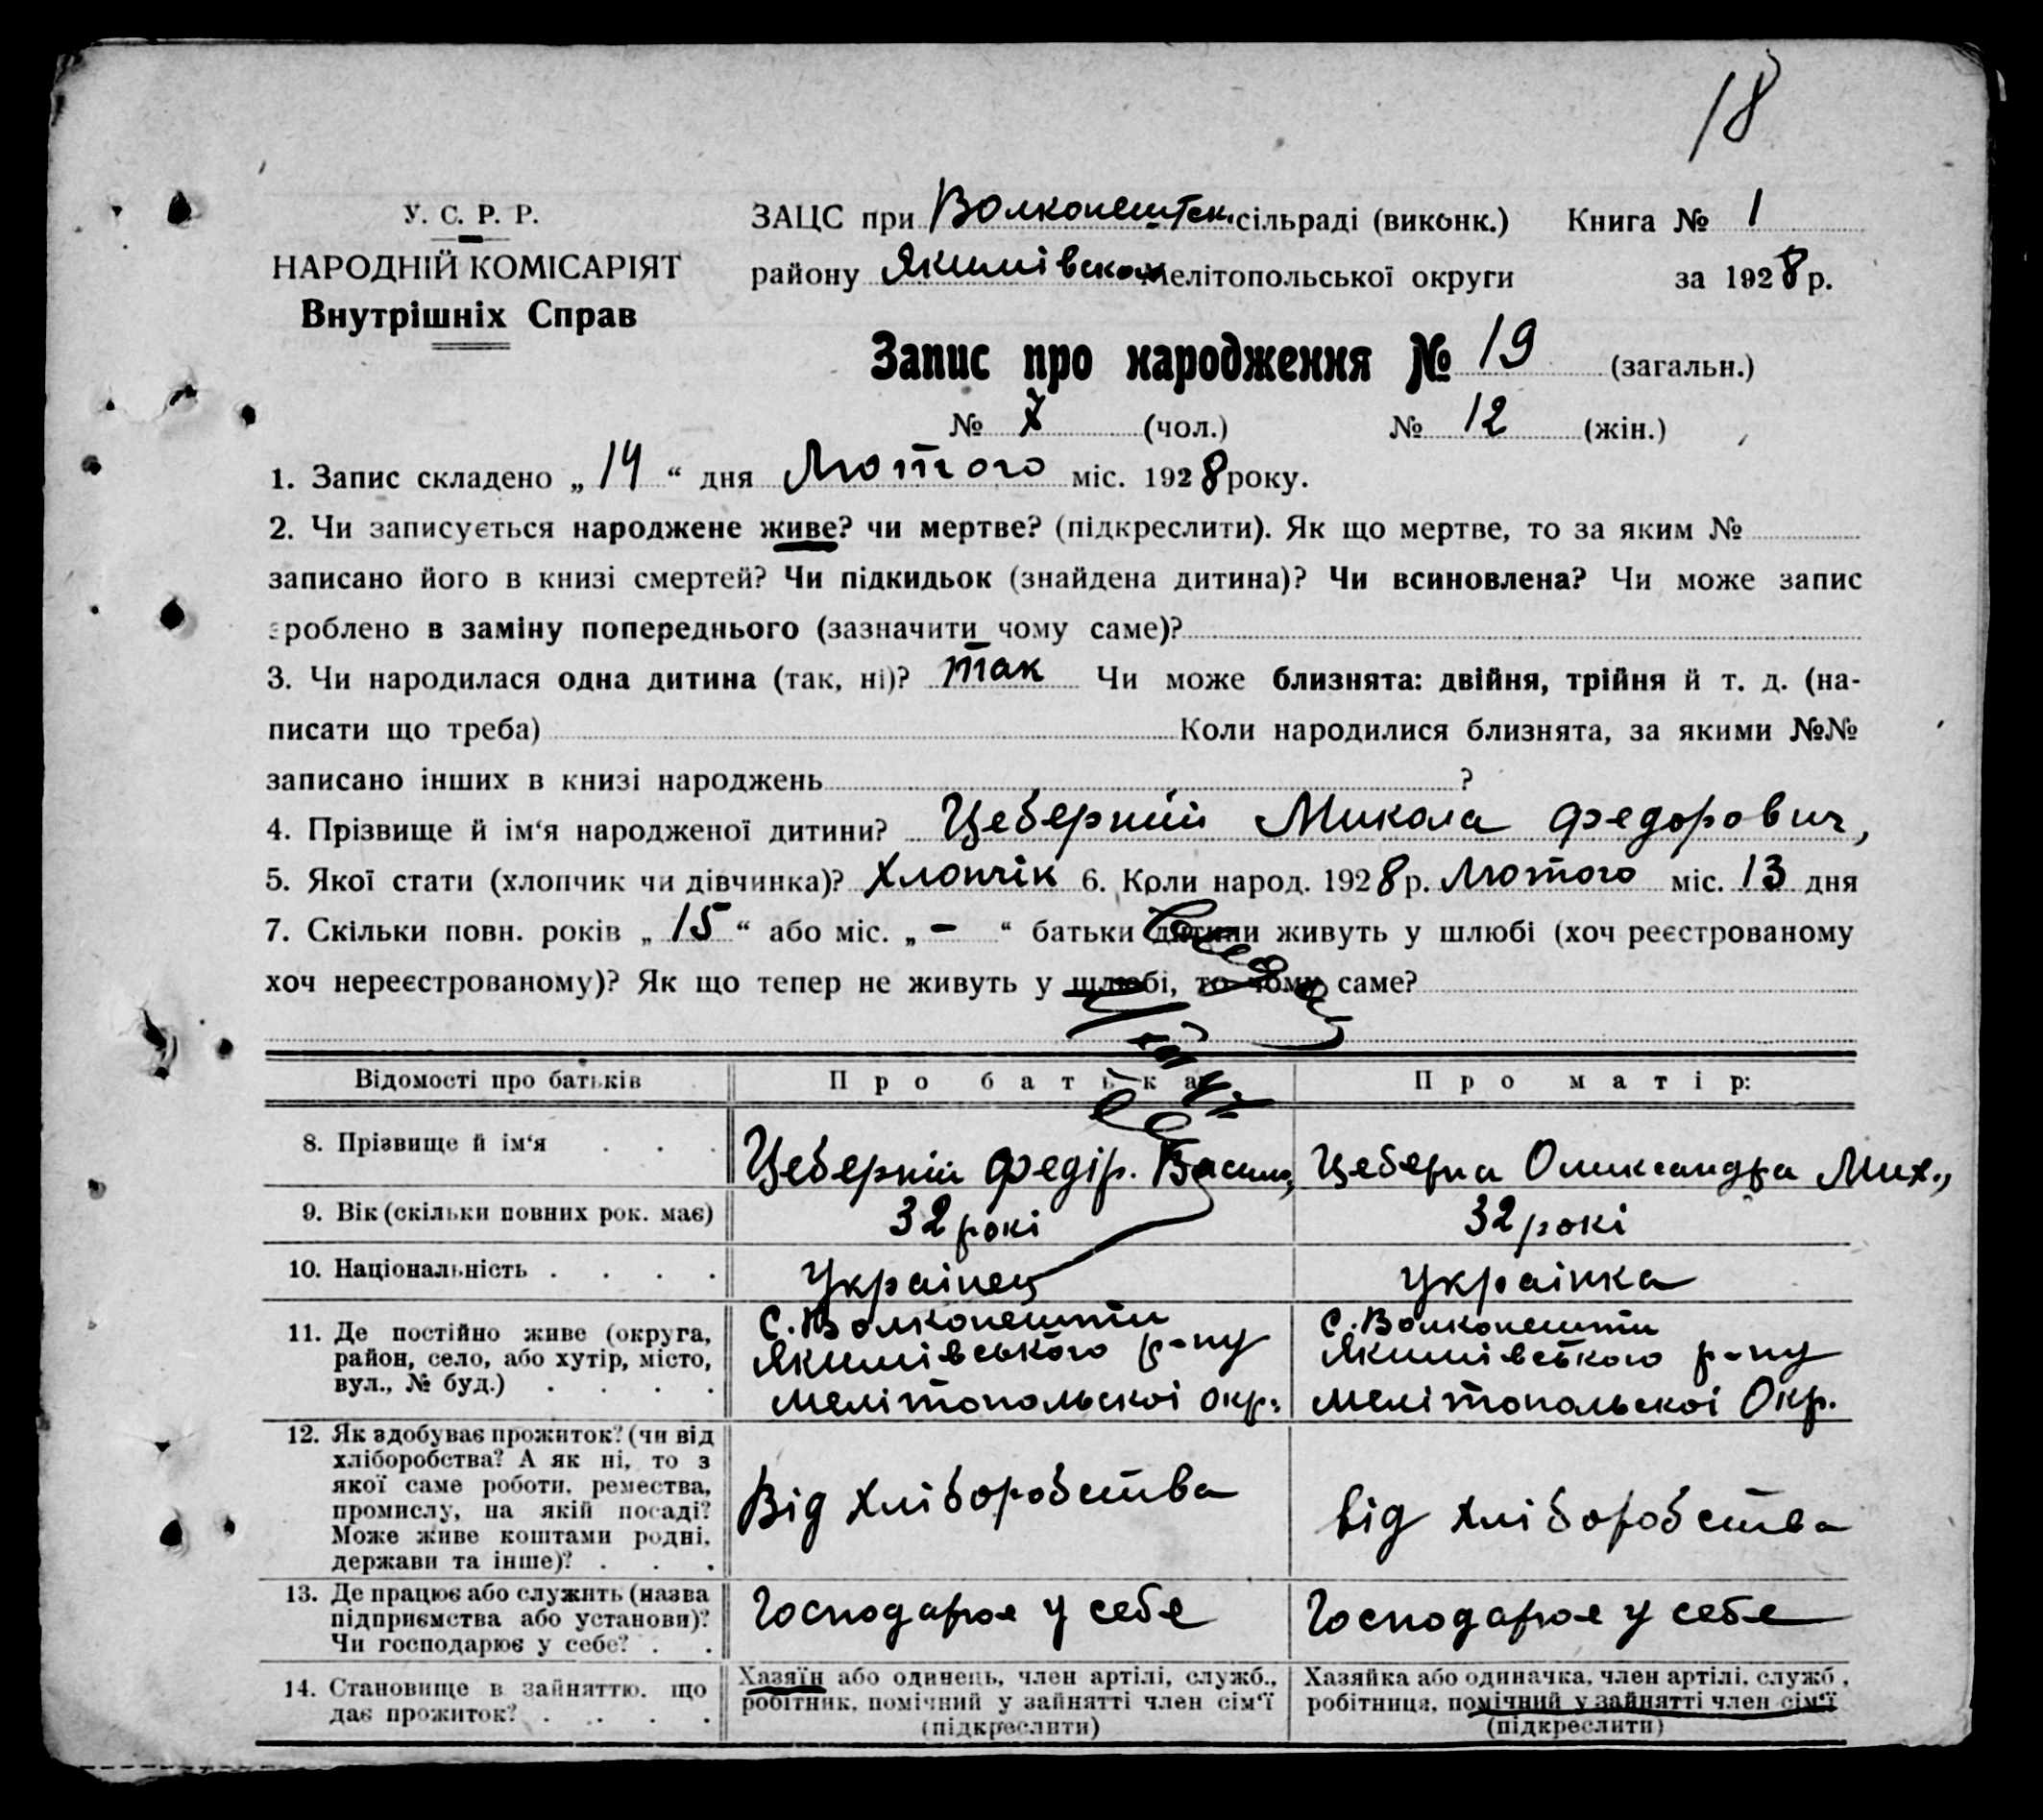 18
У. С. Р. Р.
НАРОДНІЙ КОМІСАРІЯТ
Внутрішніх Справ
ЗАЦС при Волконештск. сільраді (виконк.) Книга № 1
району Якимівском Мелітопольської округи за 1928 р.
Запис про народження № 19 (загальн.)
№ 7 (чол.) № 12 (жін.)
1. Запис складено „ 14 “ дня Лютого міс. 1928 року.
2. Чи записується народжене живе? чи мертве? (підкреслити). Як що мертве, то за яким №
записано його в книзі смертей? Чи підкидьок (знайдена дитина)? Чи всиновлена? Чи може запис
зроблено в заміну попереднього (зазначити чому саме)?
3. Чи народилася одна дитина (так, ні)? так Чи може близнята: двійня, трійня й т. д. (на-
писати що треба) Коли народилися близнята, за якими №№
записано інших в книзі народжень ?
4. Прізвище й ім‘я народженої дитини? Цеберний Микола Федорович,
5. Якої стати (хлопчик чи дівчинка)? Хлопчік 6. Коли народ. 1928 р. Лютого міс. 13 дня
7. Скільки повн. років „ 15 “ або міс. „ - “ батьки дитини живуть у шлюбі (хоч реєстрованому
хоч нереєстрованому)? Як що тепер не живуть у шлюбі, то чому саме?
Відомості про батьків Про батька: Про матір:
8. Прізвище й ім‘я Цеберній Федір. Васил, Цеберна Олександра Мих.,
9. Вік (скільки повних рок. має) 32 рокі 32 рокі
10. Національність Украінец Украінка
11. Де постійно живе (округа, район, село, або хутір, місто, вул., № буд.)
с. Волконешти
Якимівського р-ну
Мелітопольскоі окр.
с. Волконешти
Якимівського р-ну
Мелітопольскоі Окр.
12. Як здобуває прожиток? (чи від
хліборобства? А як ні, то з
якої саме роботи, ремества,
промислу, на якій посаді?
Може живе коштами родні,
держави та інше)?
Від хліборобства
Від хліборобства
13. Де працює або служить (назва
підприємства або установи)?
Чи господарює у себе?
Господарює у себе
Господарює у себе
14. Становище в зайняттю, що
дає прожиток?
Хазяїн або одинець, член артілі, служб.,
робітник, помічний у зайнятті член сім‘ї
(підкреслити)
Хазяйка або одиначка, член артілі, служб.,
робітниця, помічний у зайнятті член сім‘ї
(підкреслити)